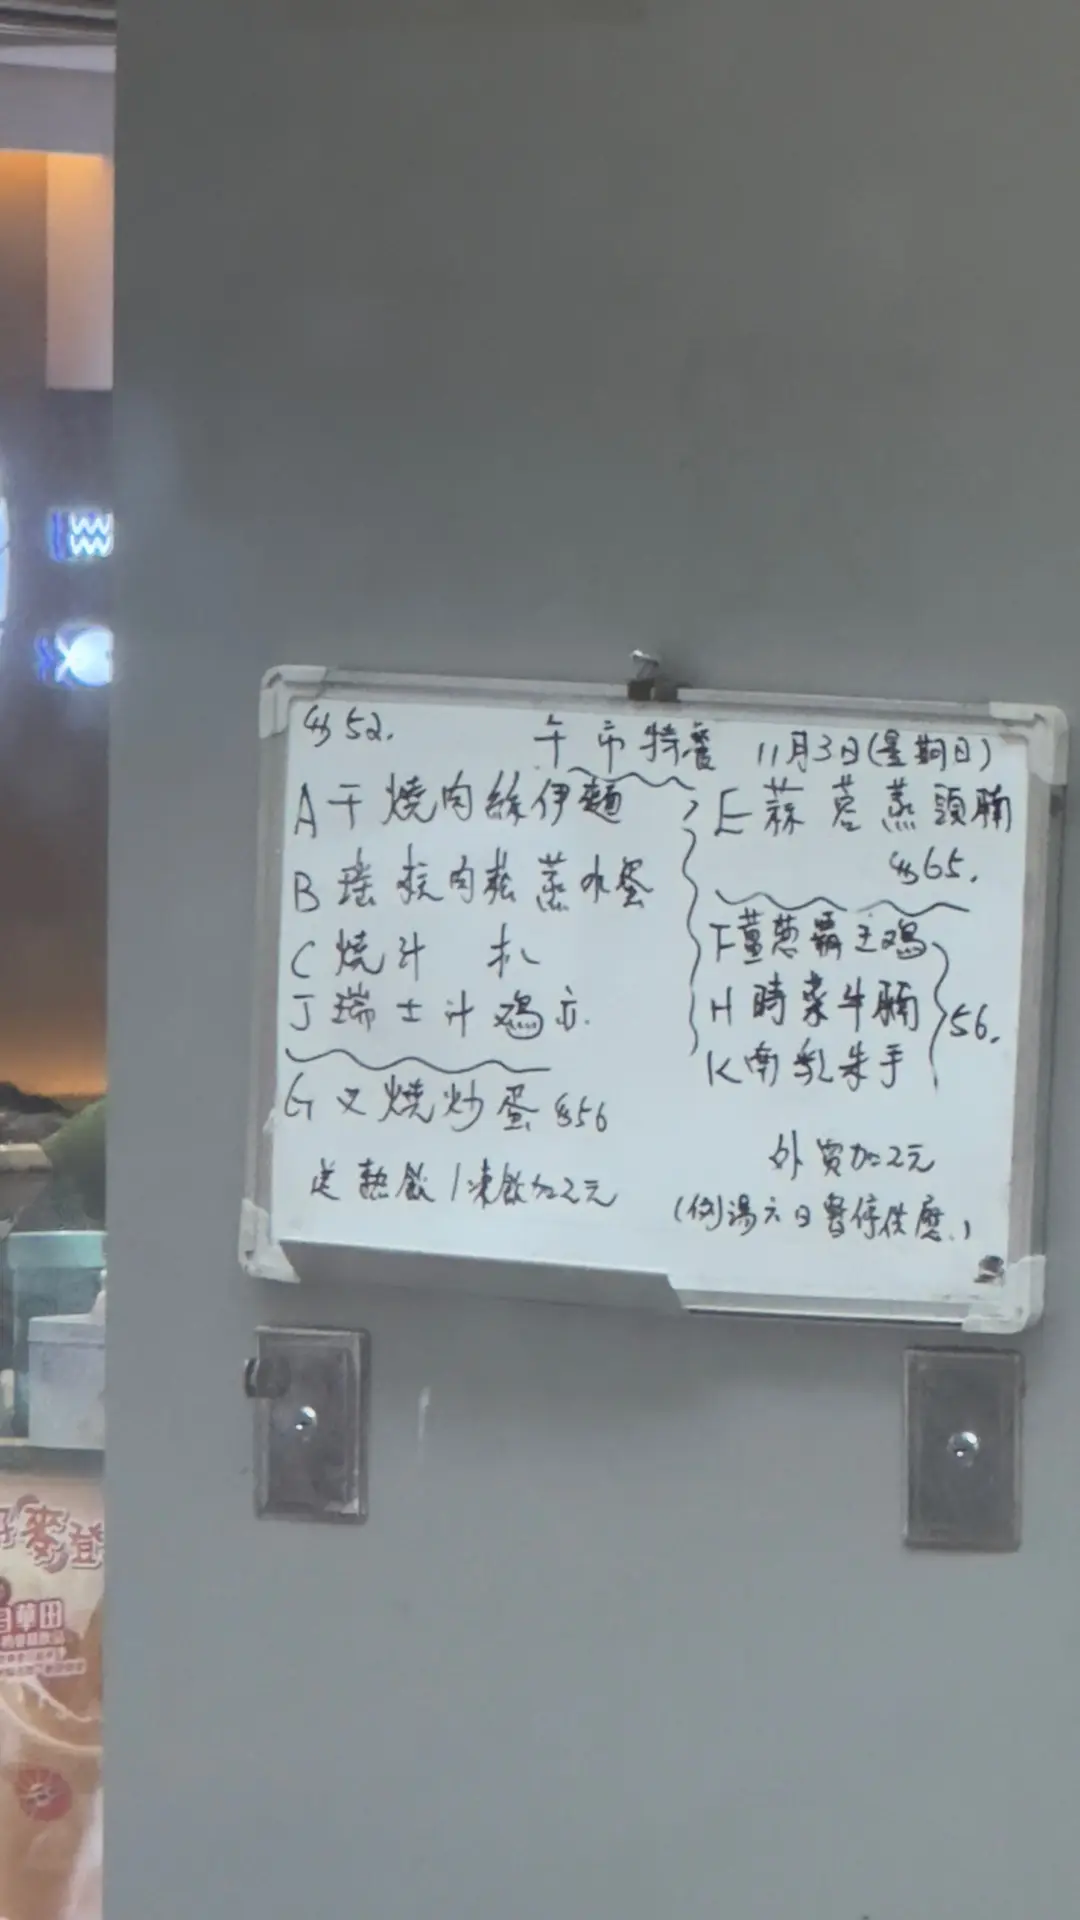 $52.
午市特餐 11月3日(星期日)
A 干燒肉絲伊麵
B 瑤柱肉鬆蒸水蛋
C 燒汁 扒
J 瑞士汁鸡亦.
G 叉燒炒蛋 $56
送熱飲/凍飲加2元
E 蒜茸蒸頭腩
$65.
F 薑葱霸王鸡
H 時菜牛腩
K 南乳朱手
56.
外賣加2元
(例湯六日暫停供應.)
麥登